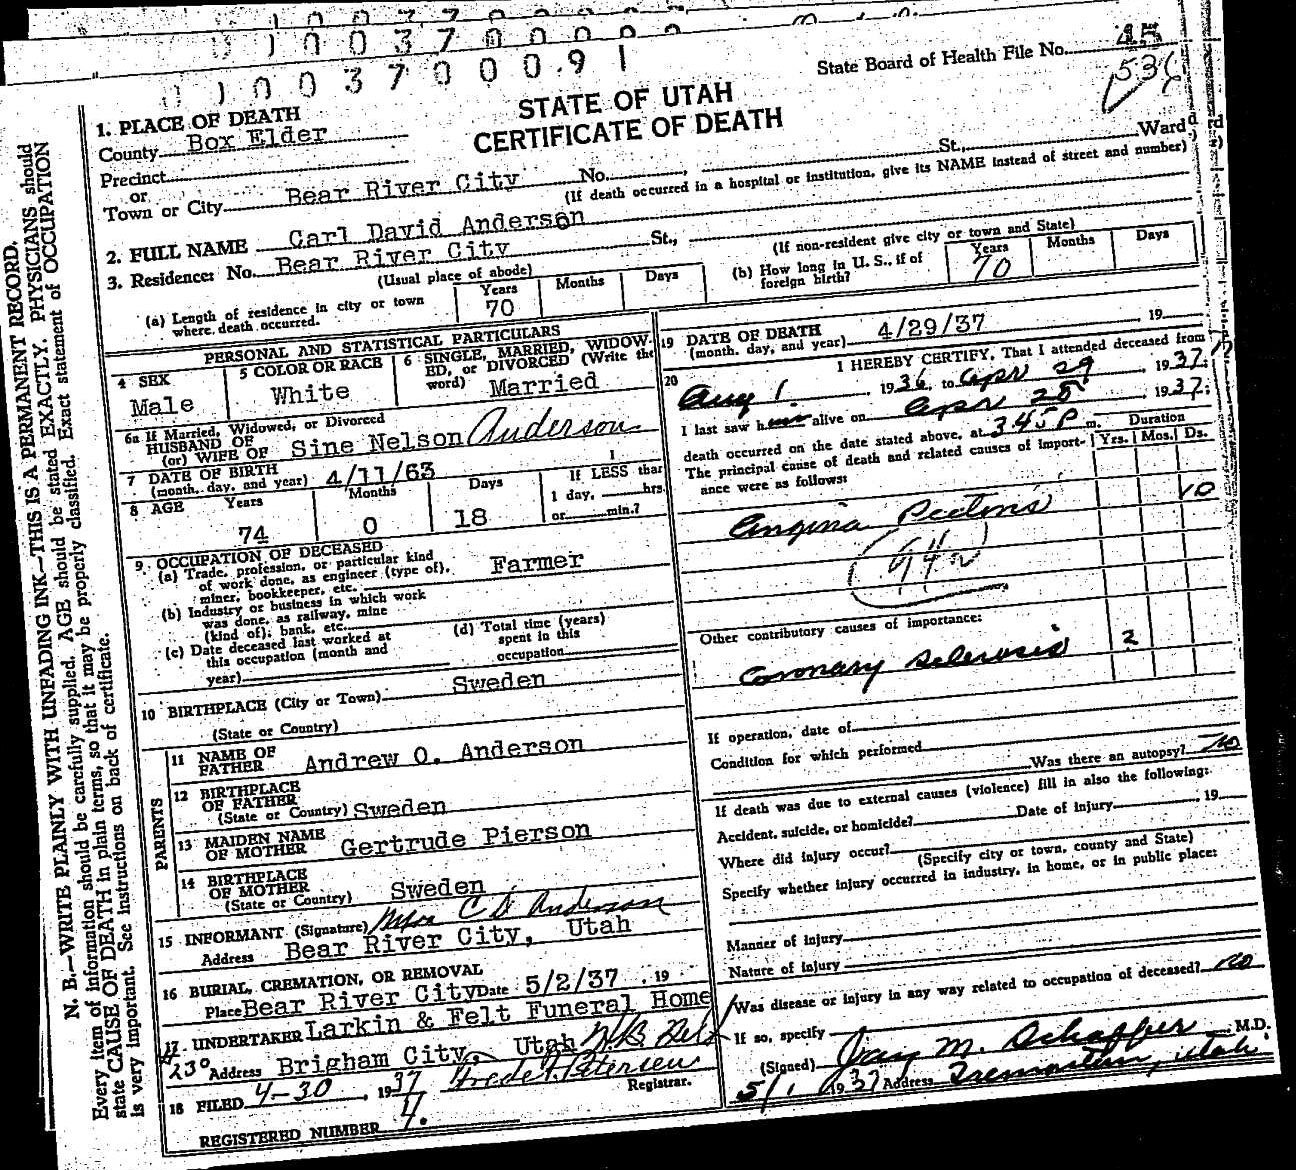 1 0 0 3 7 0 0 0 9 1
State Board of Health File No. 45
536
STATE OF UTAH
CERTIFICATE OF DEATH
1. PLACE OF DEATH
County Box Elder
Precinct
or
Town or City Bear River City No. , St., Ward
(If death occurred in a hospital or institution, give its NAME instead of street and number)
2. FULL NAME Carl David Anderson
3. Residence: No. Bear River City St.,
(Usual place of abode)
(If non-resident give city or town and State)
(a) Length of residence in city or town where death occurred. Years 70 Months Days
(b) How long in U. S., if of foreign birth? Years 70 Months Days
PERSONAL AND STATISTICAL PARTICULARS
4 SEX
Male
5 COLOR OR RACE
White
6 SINGLE, MARRIED, WIDOWED, OR DIVORCED (Write the word)
Married
6a If Married, Widowed, or Divorced
HUSBAND OF
(or) WIFE OF Sine Nelson Anderson
7 DATE OF BIRTH
(month, day, and year) 4/11/63
8 AGE Years 74 Months 0 Days 18
If LESS than
1 day, hrs.
or min.?
9. OCCUPATION OF DECEASED
(a) Trade, profession, or particular kind
of work done, as engineer (type of),
miner, bookkeeper, etc. Farmer
(b) Industry or business in which work
was done, as railway, mine
(kind of); bank, etc.
(c) Date deceased last worked at
this occupation (month and
year)
(d) Total time (years)
spent in this
occupation
10 BIRTHPLACE (City or Town) Sweden
(State or Country)
PARENTS
11 NAME OF
FATHER Andrew O. Anderson
12 BIRTHPLACE
OF FATHER
(State or Country) Sweden
13 MAIDEN NAME
OF MOTHER Gertrude Pierson
14 BIRTHPLACE
OF MOTHER
(State or Country) Sweden
15 INFORMANT (Signature) Mrs C D Anderson
Address Bear River City, Utah
16 BURIAL, CREMATION, OR REMOVAL
Place Bear River City Date 5/2/37 . 19
17. UNDERTAKER Larkin & Felt Funeral Home
#230 Address Brigham City, Utah
18 FILED 4-30, 1937 Registrar.
REGISTERED NUMBER 4.
19 DATE OF DEATH
(month, day, and year) 4/29/37 19
20 I HEREBY CERTIFY, That I attended deceased from
Aug 1, 1936, to Apr 29, 1937;
I last saw him alive on Apr 28, 1937;
death occurred on the date stated above, at 3 45 P m.
The principal cause of death and related causes of importance were as follows:
Duration
Yrs. Mos. Ds.
Angina Pectoris 10
94a
Other contributory causes of importance:
Coronary Sclerosis 2
If operation, date of
Condition for which performed
Was there an autopsy? no
If death was due to external causes (violence) fill in also the following:
Accident, suicide, or homicide? Date of injury , 19
Where did injury occur?
(Specify city or town, county and State)
Specify whether injury occurred in industry, in home, or in public place:
Manner of injury
Nature of injury
Was disease or injury in any way related to occupation of deceased? no
If so, specify
(Signed) Jay M. Schaffer M.D.
5/1 1937 Address Tremonton, Utah.
N. B.—WRITE PLAINLY WITH UNFADING INK—THIS IS A PERMANENT RECORD.
Every item of information should be carefully supplied. AGE should be stated EXACTLY. PHYSICIANS should
state CAUSE OF DEATH in plain terms, so that it may be properly classified. Exact statement of OCCUPATION
is very important. See instructions on back of certificate.